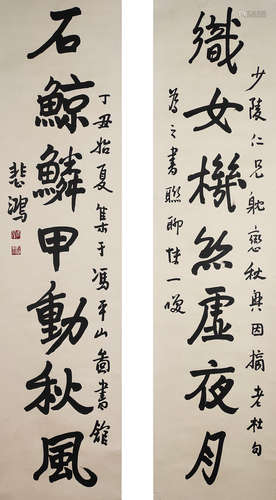 織女機絲虛夜月
少陵仁兄耽戀秋興因摘老杜句
為之書聯聊博一噱
石鯨鱗甲動秋風
丁丑始夏集于馮平山圖書館
悲鴻